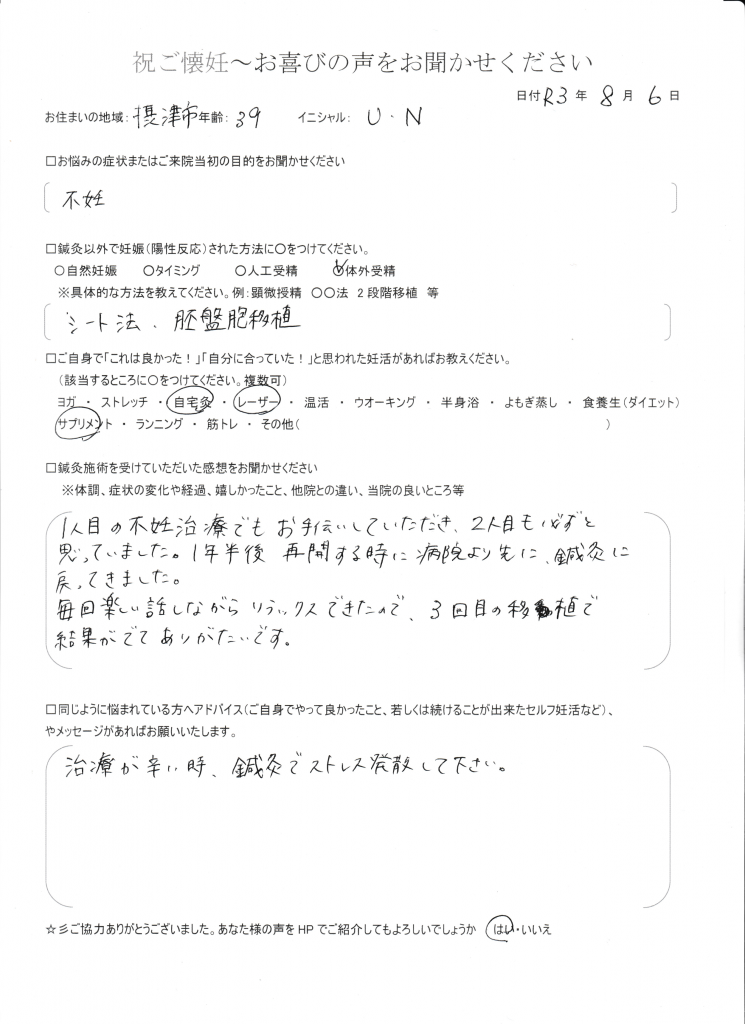 祝ご懐妊～お喜びの声をお聞かせください
日付 R3 年 8 月 6 日
お住まいの地域: 摂津市 年齢: 39 イニシャル: U・N
□お悩みの症状またはご来院当初の目的をお聞かせください
不妊
□鍼灸以外で妊娠(陽性反応)された方法に○をつけてください。
○自然妊娠 ○タイミング ○人工受精 ○体外受精
※具体的な方法を教えてください。例:顕微授精 ○○法 2段階移植 等
シート法、胚盤胞移植
□ご自身で「これは良かった！」「自分に合っていた！」と思われた妊活があればお教えください。
(該当するところに○をつけてください。複数可)
ヨガ ・ ストレッチ ・ 自宅灸 ・ レーザー ・ 温活 ・ ウオーキング ・ 半身浴 ・ よもぎ蒸し ・ 食養生(ダイエット)
サプリメント ・ ランニング ・ 筋トレ ・ その他( )
□鍼灸施術を受けていただいた感想をお聞かせください
※体調、症状の変化や経過、嬉しかったこと、他院との違い、当院の良いところ等
1人目の不妊治療でもお手伝いしていただき、2人目も必ずと
思っていました。1年半後 再開する時に病院より先に、鍼灸に
戻ってきました。
毎回楽しい話しながらリラックスできたので、3回目の移植で
結果がでてありがたいです。
□同じように悩まれている方へアドバイス(ご自身でやって良かったこと、若しくは続けることが出来たセルフ妊活など)、
やメッセージがあればお願いいたします。
治療が辛い時、鍼灸でストレス発散して下さい。
☆彡ご協力ありがとうございました。あなた様の声をHPでご紹介してもよろしいでしょうか はい・いいえ